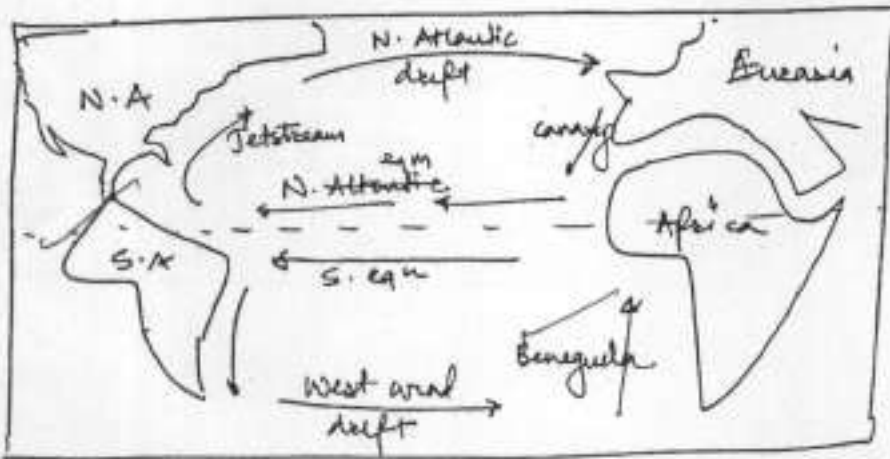 N. Atlantic
drift
Eurasia
N.A
Jetstream
canary
eqm
N. Atlantic
Africa
S.A
S. eqn
Beneguela
West wind
drift